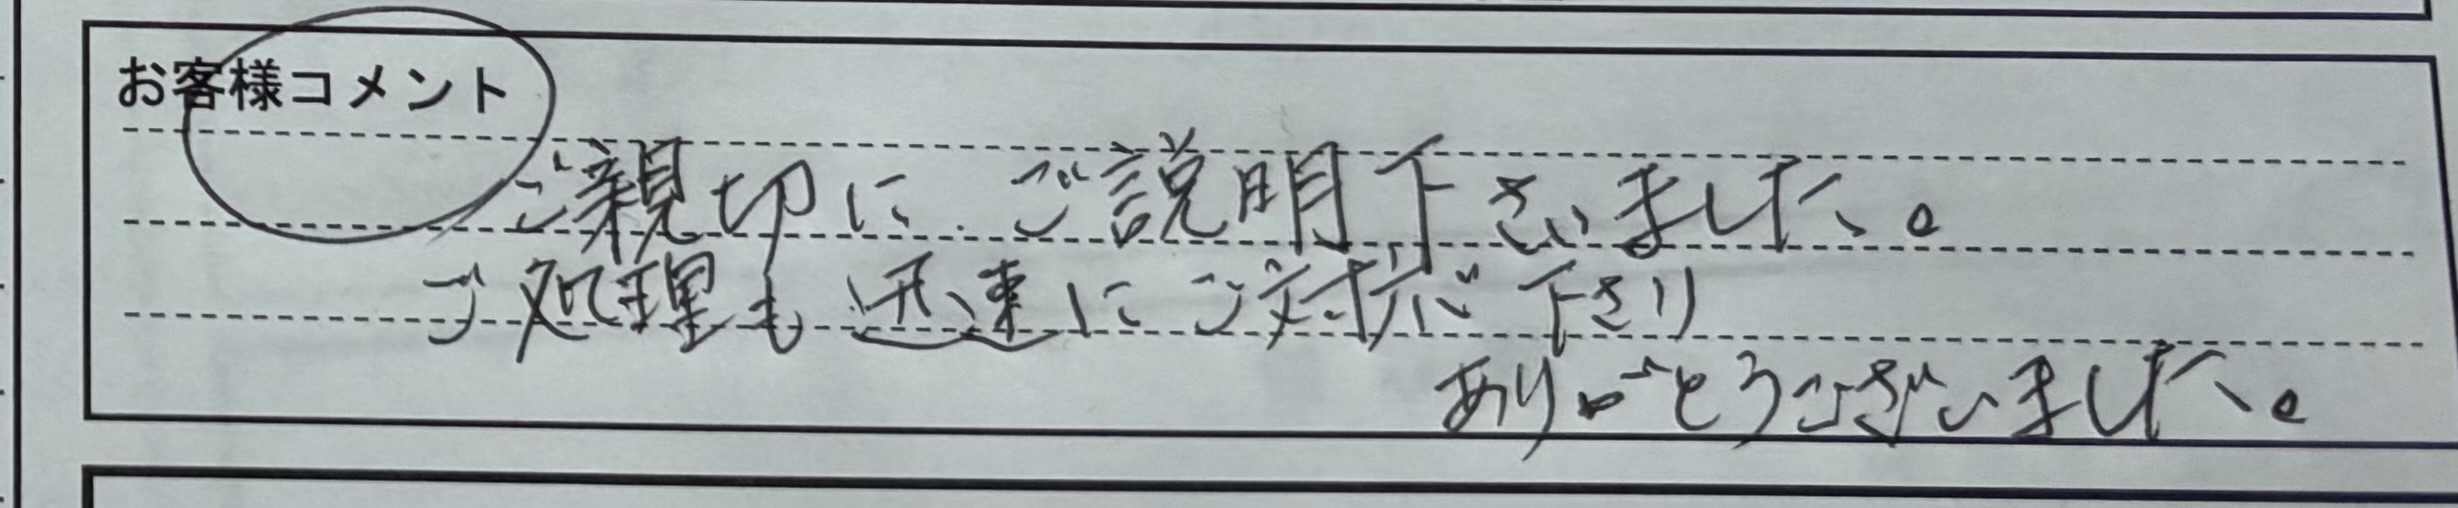 お客様コメント
ご親切に ご説明下さいました。
ご処理も迅速にご対応下さり
ありがとうございました。